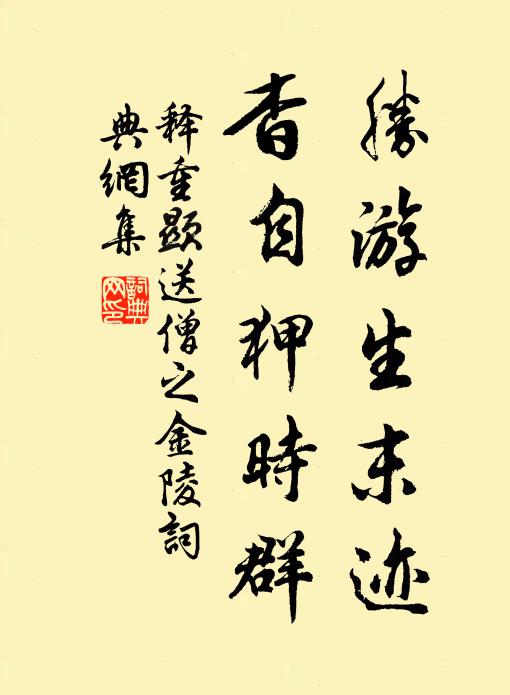 勝游生末迹
杳自狎時群
释重顯送僧之金陵詞
典網集
詞典
网印